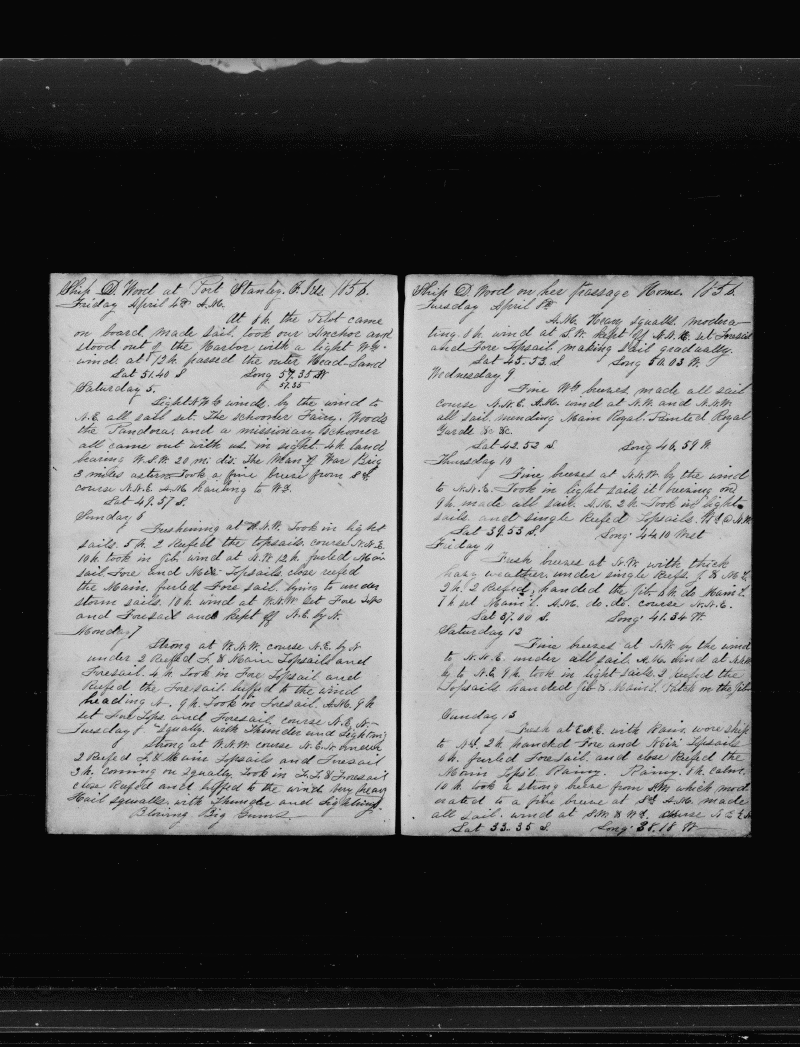 Ship D. Wood at Port Stanley. F. Iles. 1856.
Friday April 4th A.M.
At 8 h. the Pilot came
on board, made sail. took our Anchor and
stood out of the Harbor with a light Wly
wind. at 12 h. passed the outer Head-Land
Lat 51.40 S Long 57.35 W
57.35
Saturday 5.
Light Wly winds. by the wind to
N.E. all sail set. The schooner Fairy. Woods
the Pandora. and a missionary schooner
all came out with us. in sight. 4 h. land
bearing W.S.W. 20 mi. dis. The Man of War Brig
3 miles astern. Took a fine breeze from Sd.
course N.N.E. A.M. hauling to Wd.
Lat 49.57 S.
Sunday 6
Freshening at W.N.W. Took in light
sails. 5 h. 2 Reefed the topsails. course N.N.E.
10 h. took in jib. wind at N.W. 12 h. furled Main
sail. Fore and Miz Topsails. close reefed
the Main. furled Fore sail. lying to under
storm sails. 10 h. wind at W.N.W. Set Fore
and Foresail and kept off N.E. by N.
Monday 7
Strong at W.N.W. course N.E. by N
under 2 Reefed F. & Main Topsails and
Foresail. 4 h. Took in Fore Topsail and
Reefed the Foresail. luffed to the wind
heading N. 9 h. Took in Foresail. A.M. 9 h
set Fore Tops and Foresail. course N.E. N.
Tuesday 8 Squally. with Thunder and Lightning
Strong at W.N.W. course N.E. N. under
2 Reefed F. & Main Topsails and Foresail
3 h. coming on Squally. Took in F.T. & Foresail
close Reefed and luffed to the wind. Very heavy
Hail Squalls. with Thunder and Lightning.
Blowing Big Guns
Ship D. Wood on her passage Home. 1856.
Tuesday April 8th
A.M. Heavy Squalls. modera-
ting. 8 h. wind at S.W. kept off N.N.E. set Foresail
and Fore Topsail making sail gradually.
Lat 45.53. S Long 50.03 W.
Wednesday 9
Fine Wly breezes, made all sail
course N.N.E. A.M. wind at N.W. and N.N.W.
all sail. mending Main Royal. Painted Royal
Yards &c &c.
Lat 42.52 S Long 46.59 W.
Thursday 10
Fine breezes at N.N.W. by the wind
to N.N.E. Took in light sails it breezing on
9 h. made all sail. A.M. 2 h. Took in light
sails. and single Reefed Topsails.
Lat 39.53 S. Long. 44.10 West
Friday 11
Fresh breezes at N.W. with thick
hazy weather. under single Reefs. F. & M. T.
2 h. 2 Reefed, handed the jib. 6 h. do Main T.
7 h set Main T. A.M. do. do. course N.N.E.
Lat 37.00 S Long. 41.34 W.
Saturday 12
Fine breezes at N.W. by the wind
to N.N.E. under all sail. A.M. wind at N.N.W
by to N.E. 9 h. took in light sails. 2 reefed the
Topsails. handed jib & Mains'l. Patch on the jib
Sunday 13
Fresh at E.N.E. with Rain. wore ship
to Nd. 2 h. handed Fore and Miz Topsails
6 h. furled Fore sail. and close Reefed the
Main Topsl. Rainy. Rainy. 8 h. calm.
10 h. took a strong breeze from S.W. which mod
erated to a fine breeze at Sd. A.M. made
all sail. wind at S.W. & Wd. course
Lat 33..35 S. Long. 38.18 W